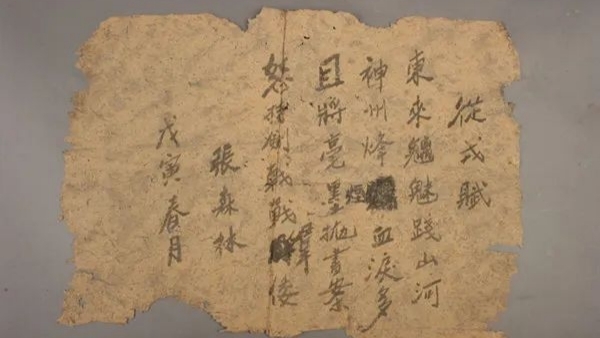 從戎賦
東來魑魅踐山河
神州烽煙血淚多
且將毫墨拋書案
怒持劍戟戰羣倭
張森林
戊寅春月